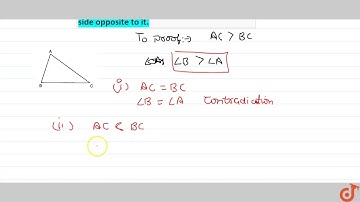 side opposite to it.
To proof:→ AC > BC
∠B > ∠A
A
B C
(i) AC = BC
∠B = ∠A Contradiction
(ii) AC < BC